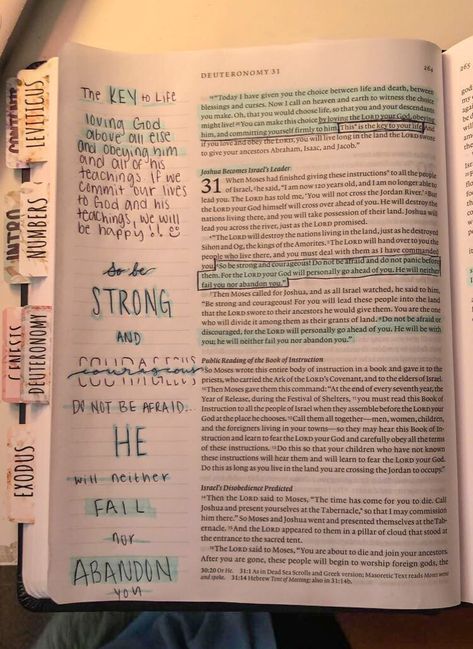 DEUTERONOMY 31
264
The KEY to Life
loving God
above all else
and obeying him
and all of his
teachings. If we
commit our lives
to God and his
teachings, we will
be happy!!
so be
STRONG
AND
COURAGEOUS
courageous
DO NOT BE AFRAID:
HE
will neither
FAIL
nor
ABANDON
you
LEVITICUS
INTRO
NUMBERS
GENESIS
DEUTERONOMY
EXODUS
19 "Today I have given you the choice between life and death, between
blessings and curses. Now I call on heaven and earth to witness the choice
you make. Oh, that you would choose life, so that you and your descendants
might live! 20 You can make this choice by loving the LORD your God, obeying
him, and committing yourself firmly to him. This* is the key to your life. And
if you love and obey the LORD, you will live long in the land the LORD swore
to give your ancestors Abraham, Isaac, and Jacob."
Joshua Becomes Israel's Leader
31 When Moses had finished giving these instructions* to all the people
of Israel, 2 he said, "I am now 120 years old, and I am no longer able to
lead you. The LORD has told me, 'You will not cross the Jordan River.' 3 But
the LORD your God himself will cross over ahead of you. He will destroy the
nations living there, and you will take possession of their land. Joshua will
lead you across the river, just as the LORD promised.
4 "The LORD will destroy the nations living in the land, just as he destroyed
Sihon and Og, the kings of the Amorites. 5 The LORD will hand over to you the
people who live there, and you must deal with them as I have commanded
you. 6 So be strong and courageous! Do not be afraid and do not panic before
them. For the LORD your God will personally go ahead of you. He will neither
fail you nor abandon you."
7 Then Moses called for Joshua, and as all Israel watched, he said to him,
"Be strong and courageous! For you will lead these people into the land
that the LORD swore to their ancestors he would give them. You are the one
who will divide it among them as their grants of land. 8 Do not be afraid or
discouraged, for the LORD will personally go ahead of you. He will be with
you; he will neither fail you nor abandon you."
Public Reading of the Book of Instruction
9 So Moses wrote this entire body of instruction in a book and gave it to the
priests, who carried the Ark of the LORD's Covenant, and to the elders of Israel.
10 Then Moses gave them this command: "At the end of every seventh year, the
Year of Release, during the Festival of Shelters, 11 you must read this Book of
Instruction to all the people of Israel when they assemble before the LORD your
God at the place he chooses. 12 Call them all together—men, women, children,
and the foreigners living in your towns—so they may hear this Book of In-
struction and learn to fear the LORD your God and carefully obey all the terms
of these instructions. 13 Do this so that your children who have not known
these instructions will hear them and will learn to fear the LORD your God.
Do this as long as you live in the land you are crossing the Jordan to occupy."
Israel's Disobedience Predicted
14 Then the LORD said to Moses, "The time has come for you to die. Call
Joshua and present yourselves at the Tabernacle,* so that I may commission
him there." So Moses and Joshua went and presented themselves at the Tab-
ernacle. 15 And the LORD appeared to them in a pillar of cloud that stood at
the entrance to the sacred tent.
16 The LORD said to Moses, "You are about to die and join your ancestors.
After you are gone, these people will begin to worship foreign gods, the
30:20 Or He. 31:1 As in Dead Sea Scrolls and Greek version; Masoretic Text reads Moses went
and spoke. 31:14 Hebrew Tent of Meeting; also in 31:14b.
265